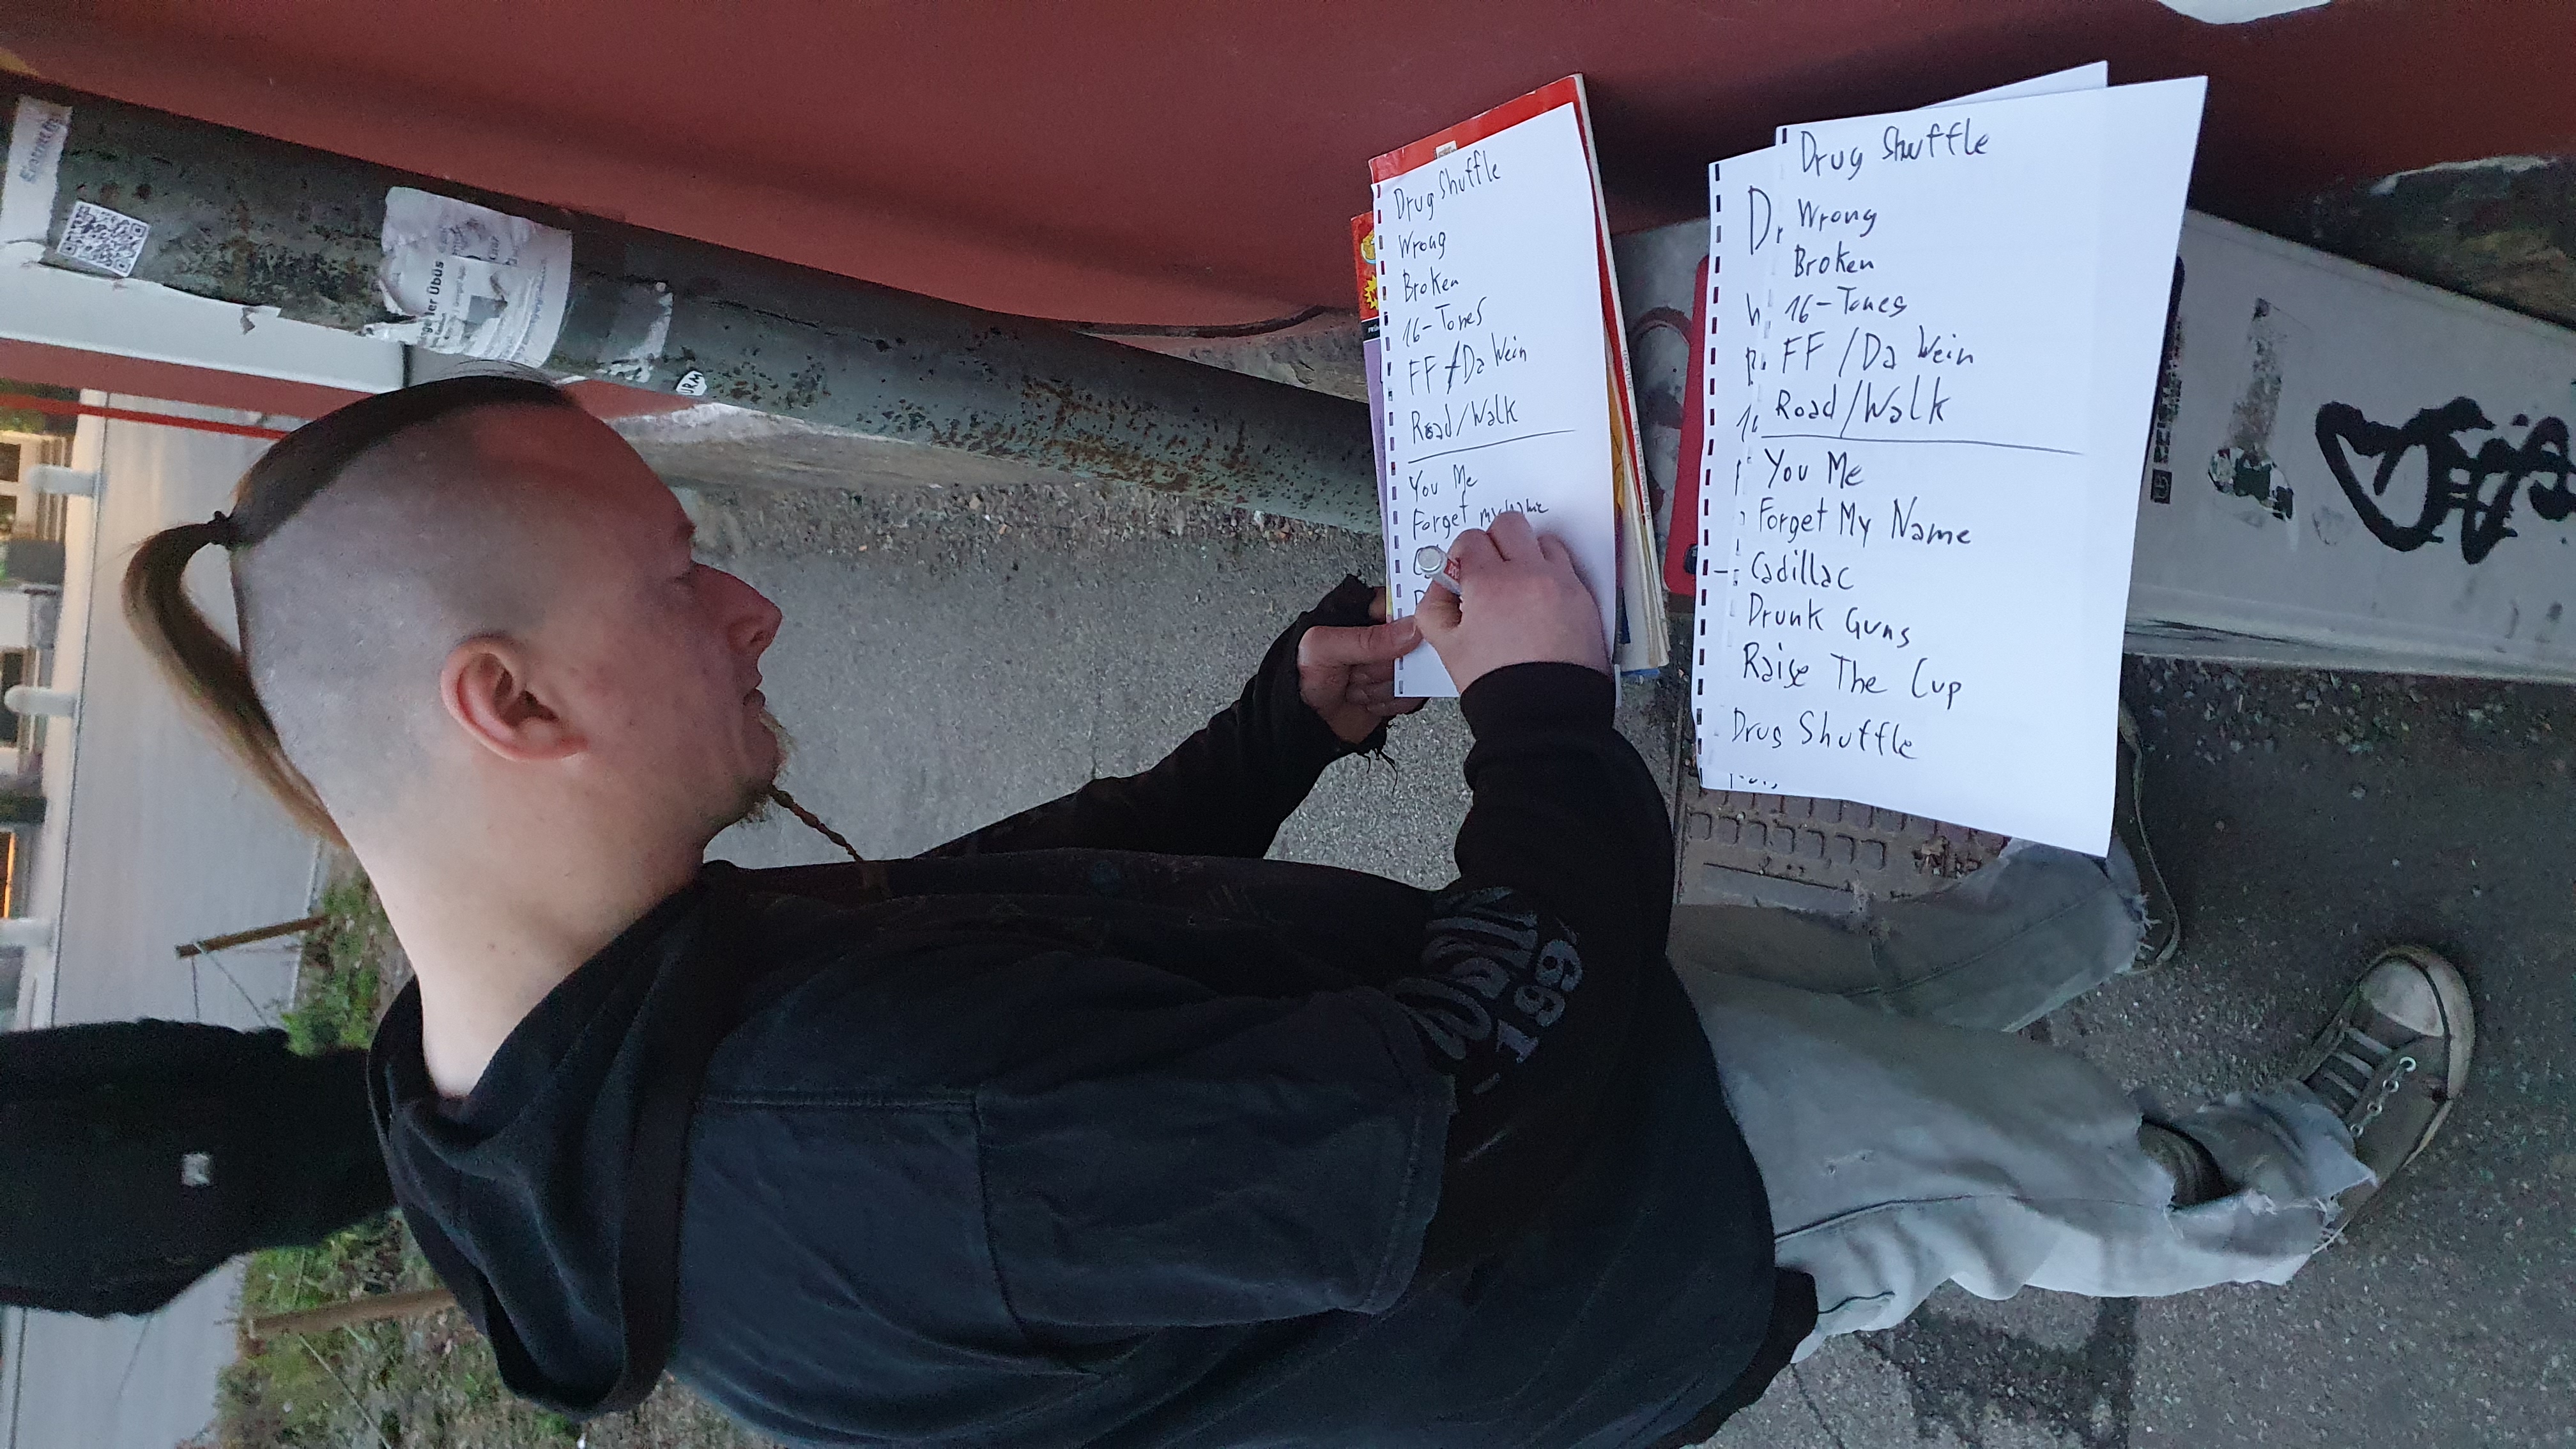 Drug Shuffle
Wrong
Broken
16-Tones
FF/Da Wein
Road/Walk
You Me
Forget my name
Drug Shuffle
Wrong
Broken
16-Tones
FF/Da Wein
Road/Walk
You Me
Forget My Name
Cadillac
Drunk Guns
Raise The Cup
Drug Shuffle
199